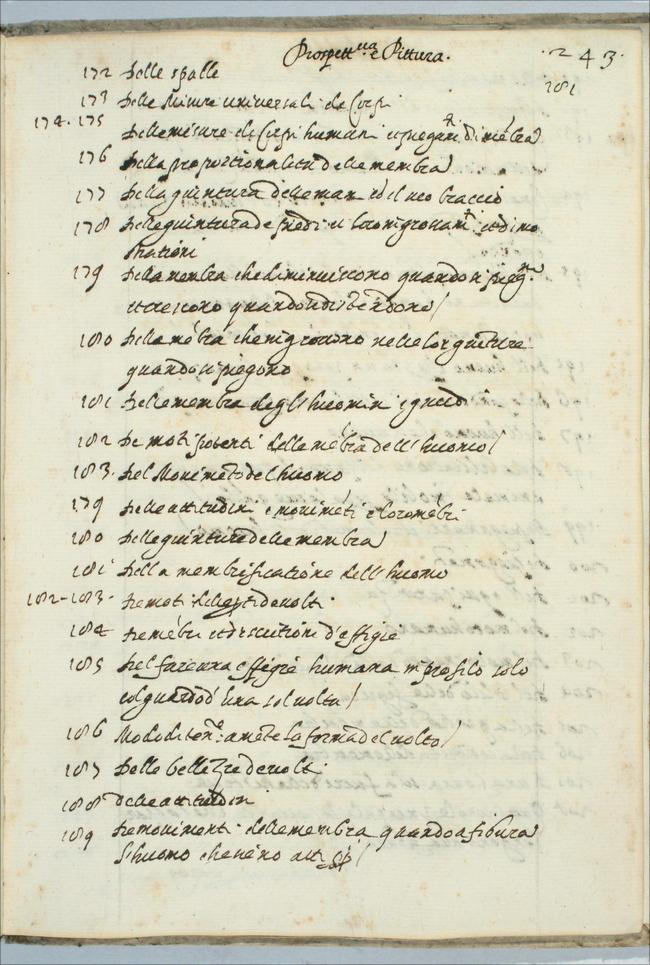 Prospettiua e Pittura. .243.
181
172 Delle spalle
173 Delle Misure uniuersali de Corpi
174.175 Delle misure de Corpi humani e piegari di mẽbra
176 Della proportionalita delle membra
177 Della giuntura delle man col suo braccio
178 Delle giunture de piedi et loro ingrossari et dimi
179 Delle membra che diminuiscono quando si pieg.no
et crescono quando si distẽdono/
180 Delle mẽbra che ingrossano nelle lor giunture
quando si piegono
181 Delle membra degl'huomin ignudi
182 De moti potenti delle mẽbra dell'huomo/
183. Del Mouimẽto del huomo
179 Delle attitudini e mouimẽti e loro mẽbri
180 Delle giunture delle membra
181 Della membrificatione dell'huomo
182-183. De moti de uolti
184 De mẽbri et descritioni d'effigie
185 Del fare una effigie humana in profilo solo
col guardo d'una sol uolta/
186 Modo di ten.e a mẽte la forma del uolto/
187 Delle bellezze de uolti
188 delle attitudini
189 De mouimenti delle membra quando a figura
l'huomo che sieno atti